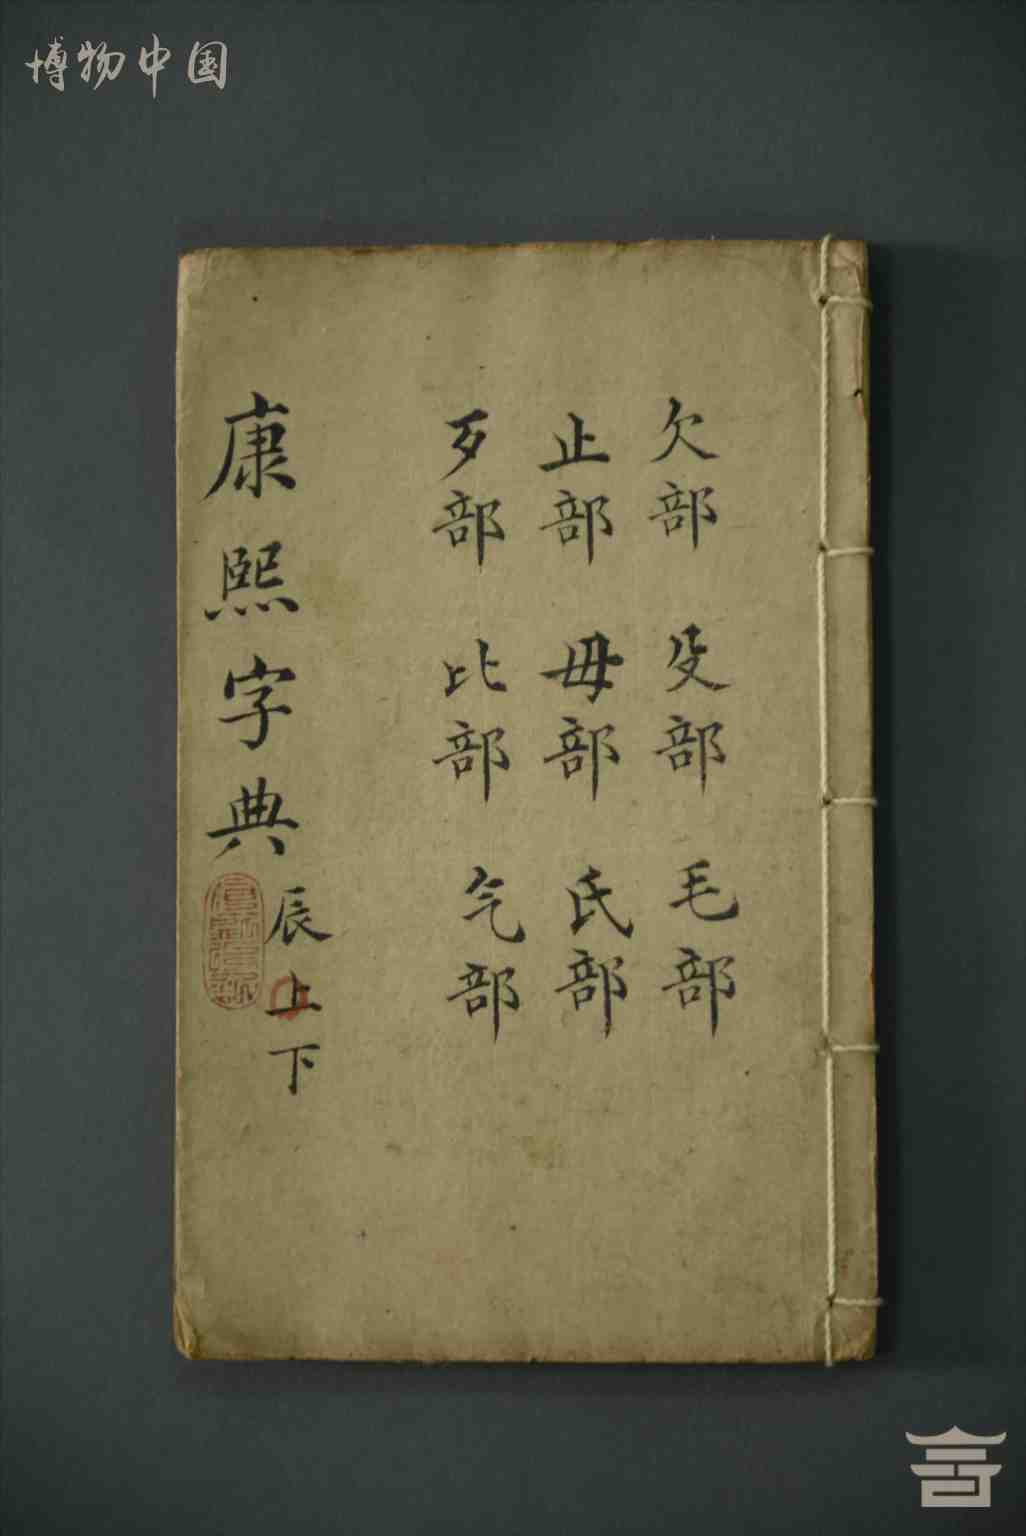 博物中国
欠部 殳部 毛部
止部 毋部 氏部
歹部 比部 气部
康熙字典
辰上下